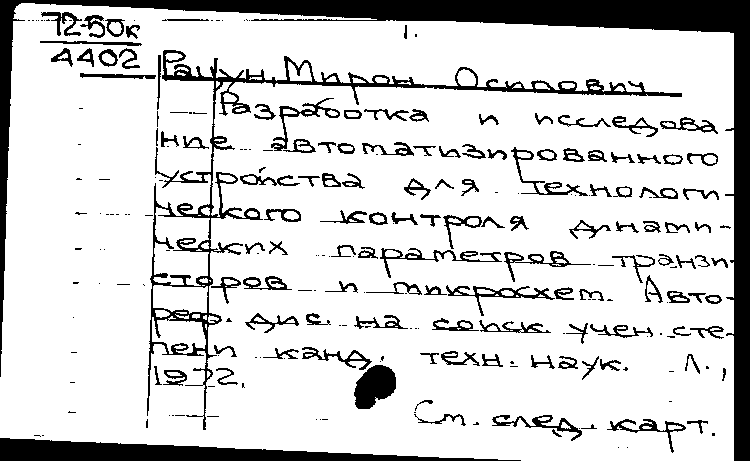 72-50к
4402
1.
Рацун, Мирон Осипович
Разработка и исследова-
ние автоматизированного
устройства для технологи-
ческого контроля динами-
ческих параметров транзи-
сторов и микросхем. Авто-
реф. дис. на соиск. учен. сте-
пени канд. техн. наук. Л.,
1972.
См. след. карт.